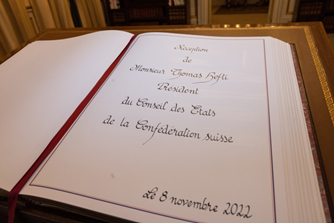 Réception
de
Monsieur Thomas Hefti
Président
du Conseil des Etats
de la Confédération suisse
Le 8 novembre 2022